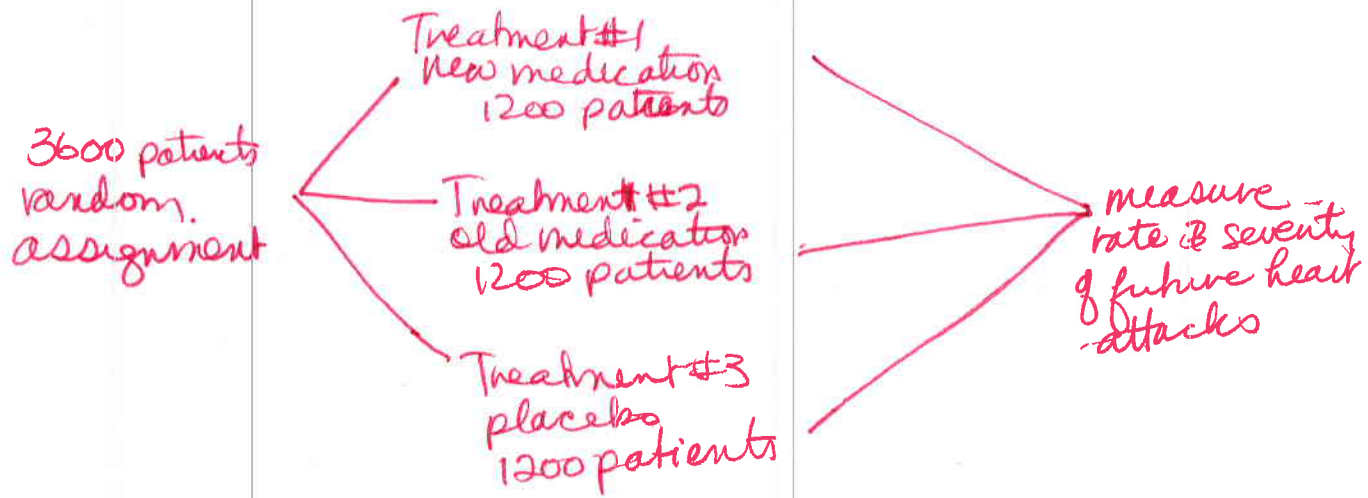 3600 patients
random.
assignment
Treatment #1
new medication
1200 patients
Treatment #2
old medication
1200 patients
Treatment #3
placebo
1200 patients
measure -
rate & severity
of future heart
attacks